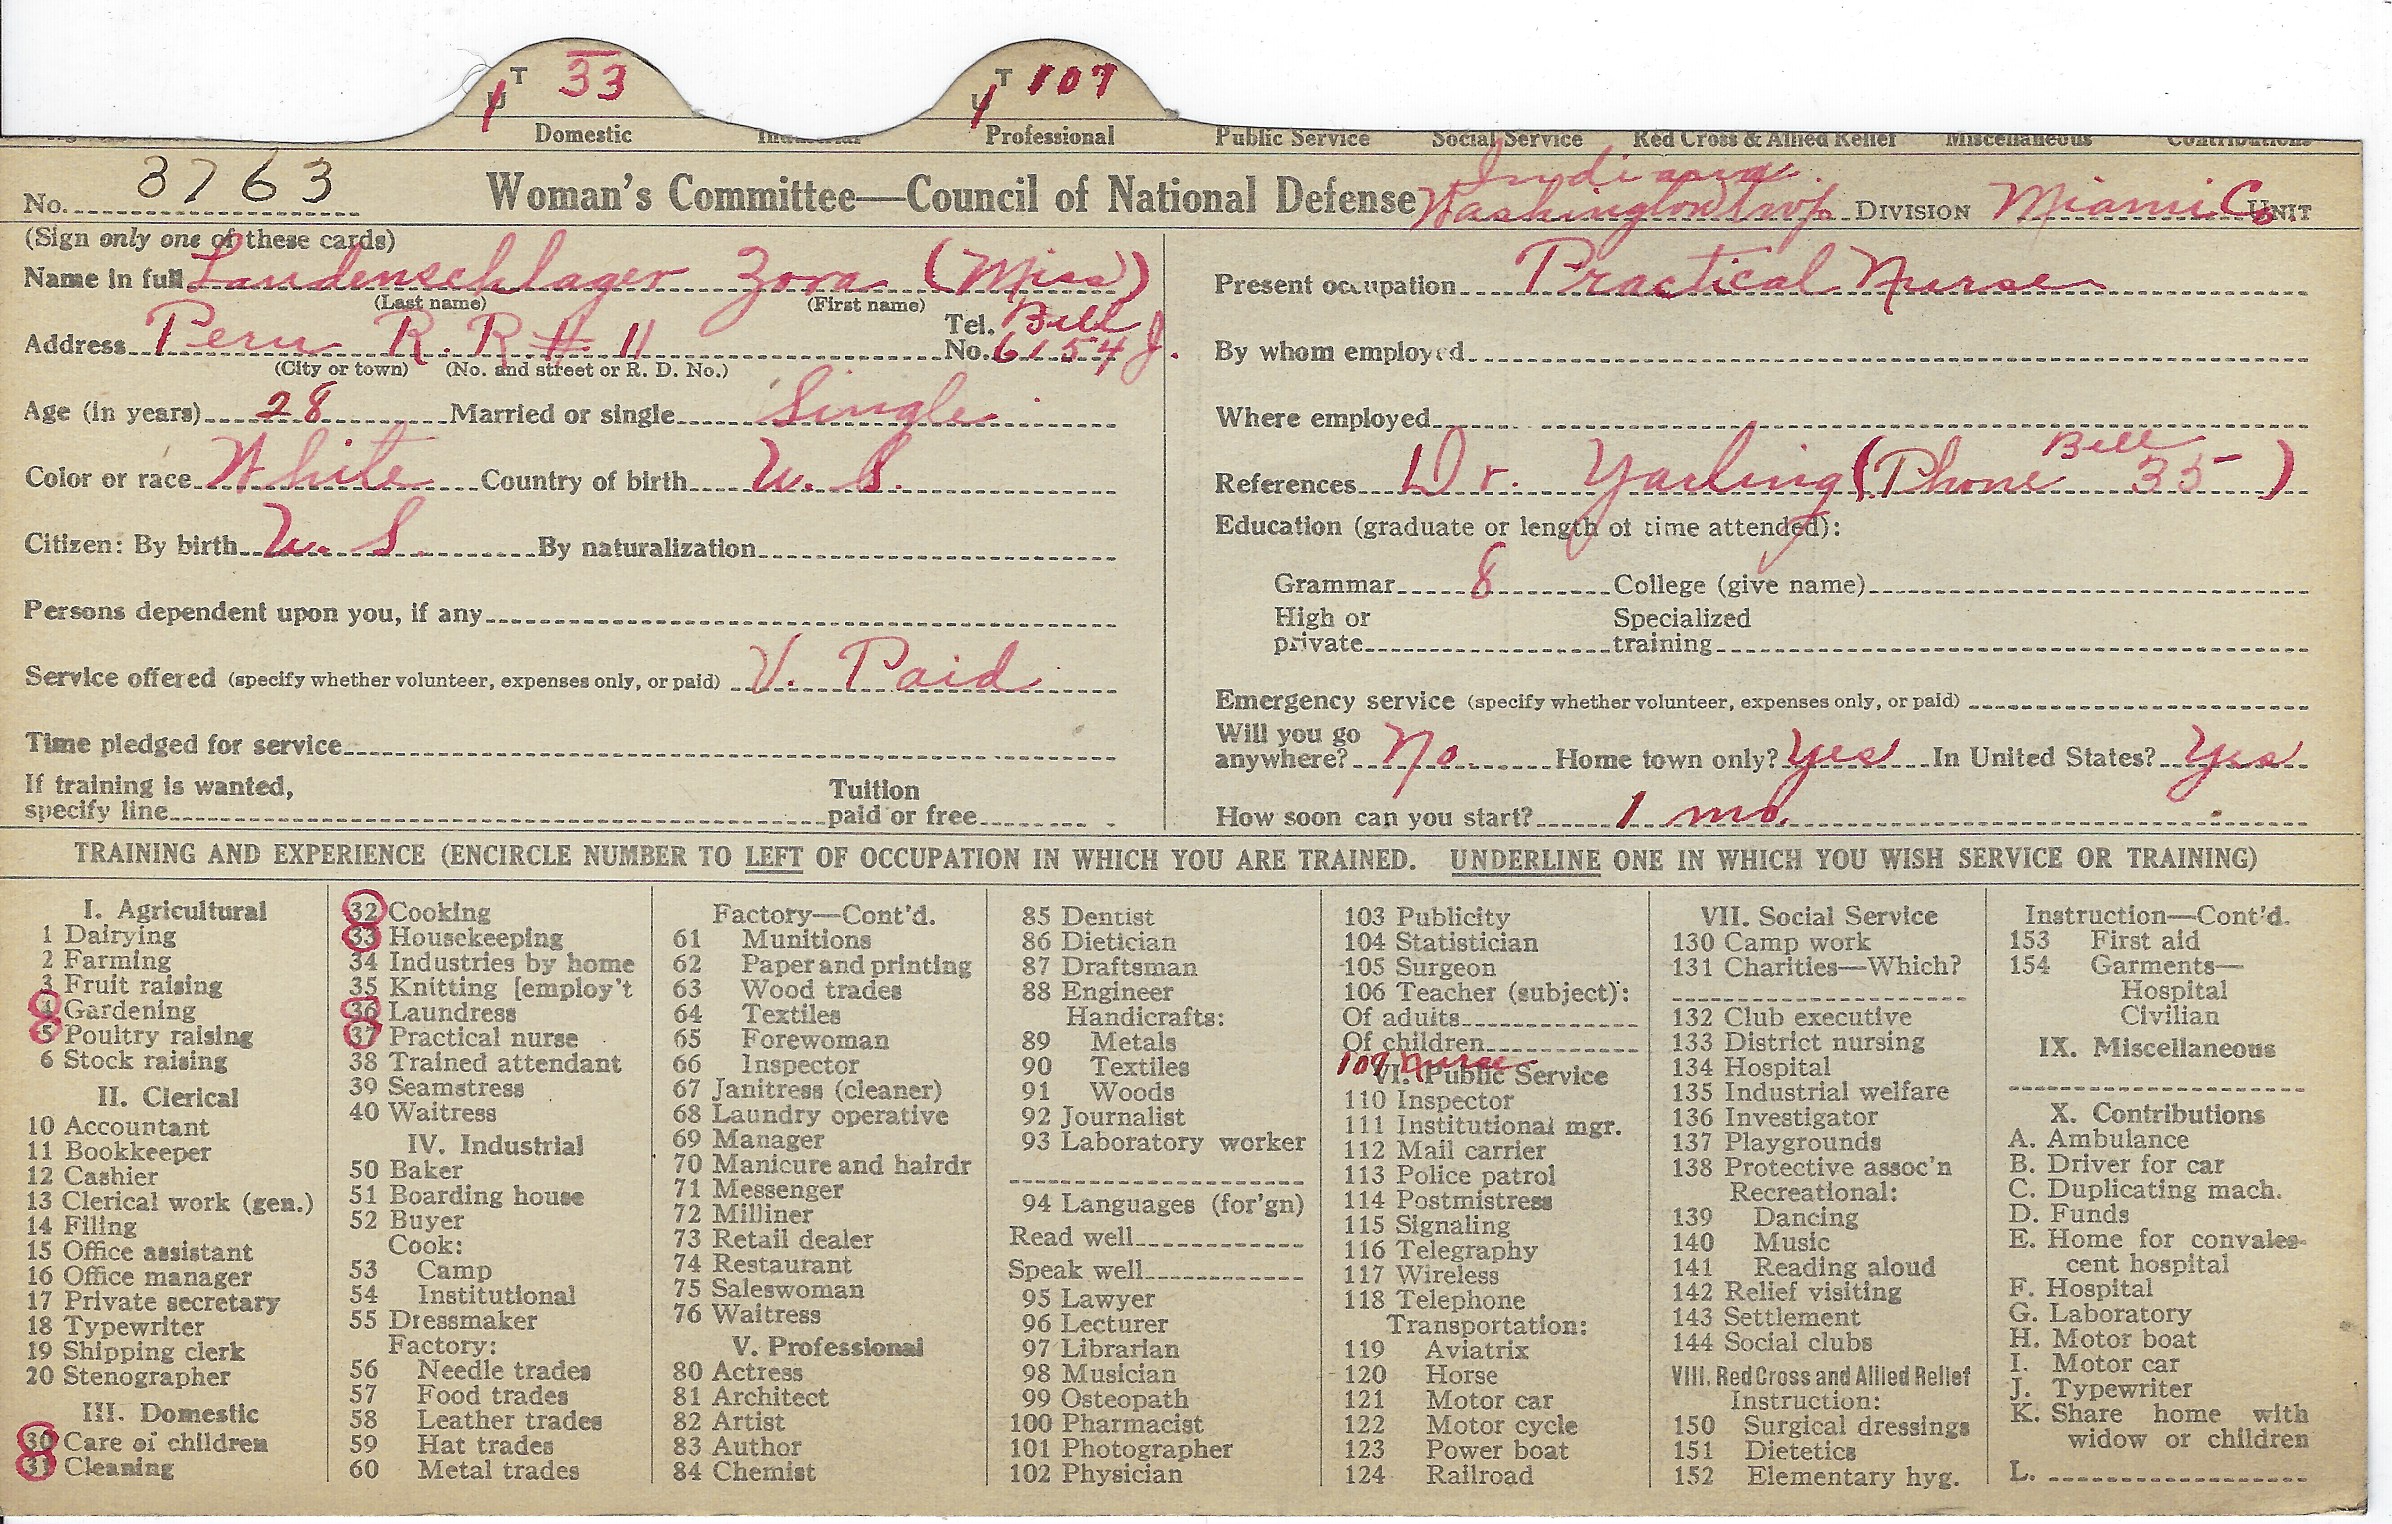 T 33
1 U
T 107
1 U
Domestic Industrial Professional Public Service Social Service Red Cross & Allied Relief Miscellaneous Contributions
No. 8763 Woman's Committee—Council of National Defense Indiana. Washington twp. DIVISION Miami Co UNIT
(Sign only one of these cards)
Name in full Laudenschlager Zora (Miss)
(Last name) (First name)
Address Peru R. R #. 11 Tel. No. Bell 6154 J.
(City or town) (No. and street or R. D. No.)
Age (in years) 28 Married or single Single
Color or race White Country of birth U. S.
Citizen: By birth U. S. By naturalization
Persons dependent upon you, if any
Service offered (specify whether volunteer, expenses only, or paid) V. Paid
Time pledged for service
If training is wanted, specify line Tuition paid or free
Present occupation Practical Nurse
By whom employed
Where employed
References Dr. Yarling (Phone Bell 35)
Education (graduate or length of time attended):
Grammar 8 College (give name)
High or private Specialized training
Emergency service (specify whether volunteer, expenses only, or paid)
Will you go anywhere? No. Home town only? Yes In United States? Yes
How soon can you start? 1 mo.
TRAINING AND EXPERIENCE (ENCIRCLE NUMBER TO LEFT OF OCCUPATION IN WHICH YOU ARE TRAINED. UNDERLINE ONE IN WHICH YOU WISH SERVICE OR TRAINING)
I. Agricultural
1 Dairying
2 Farming
3 Fruit raising
4 Gardening
5 Poultry raising
6 Stock raising
II. Clerical
10 Accountant
11 Bookkeeper
12 Cashier
13 Clerical work (gen.)
14 Filing
15 Office assistant
16 Office manager
17 Private secretary
18 Typewriter
19 Shipping clerk
20 Stenographer
III. Domestic
30 Care of children
31 Cleaning
32 Cooking
33 Housekeeping
34 Industries by home
35 Knitting [employ't
36 Laundress
37 Practical nurse
38 Trained attendant
39 Seamstress
40 Waitress
IV. Industrial
50 Baker
51 Boarding house
52 Buyer
Cook:
53 Camp
54 Institutional
55 Dressmaker
Factory:
56 Needle trades
57 Food trades
58 Leather trades
59 Hat trades
60 Metal trades
Factory—Cont'd.
61 Munitions
62 Paper and printing
63 Wood trades
64 Textiles
65 Forewoman
66 Inspector
67 Janitress (cleaner)
68 Laundry operative
69 Manager
70 Manicure and hairdr
71 Messenger
72 Milliner
73 Retail dealer
74 Restaurant
75 Saleswoman
76 Waitress
V. Professional
80 Actress
81 Architect
82 Artist
83 Author
84 Chemist
85 Dentist
86 Dietician
87 Draftsman
88 Engineer
Handicrafts:
89 Metals
90 Textiles
91 Woods
92 Journalist
93 Laboratory worker
94 Languages (for'gn)
Read well
Speak well
95 Lawyer
96 Lecturer
97 Librarian
98 Musician
99 Osteopath
100 Pharmacist
101 Photographer
102 Physician
103 Publicity
104 Statistician
105 Surgeon
106 Teacher (subject):
Of adults
Of children
107 Nurse
VI. Public Service
110 Inspector
111 Institutional mgr.
112 Mail carrier
113 Police patrol
114 Postmistress
115 Signaling
116 Telegraphy
117 Wireless
118 Telephone
Transportation:
119 Aviatrix
120 Horse
121 Motor car
122 Motor cycle
123 Power boat
124 Railroad
VII. Social Service
130 Camp work
131 Charities—Which?
132 Club executive
133 District nursing
134 Hospital
135 Industrial welfare
136 Investigator
137 Playgrounds
138 Protective assoc'n
Recreational:
139 Dancing
140 Music
141 Reading aloud
142 Relief visiting
143 Settlement
144 Social clubs
VIII. Red Cross and Allied Relief
Instruction:
150 Surgical dressings
151 Dietetics
152 Elementary hyg.
Instruction—Cont'd.
153 First aid
154 Garments—
Hospital
Civilian
IX. Miscellaneous
X. Contributions
A. Ambulance
B. Driver for car
C. Duplicating mach.
D. Funds
E. Home for convales-
cent hospital
F. Hospital
G. Laboratory
H. Motor boat
I. Motor car
J. Typewriter
K. Share home with
widow or children
L.